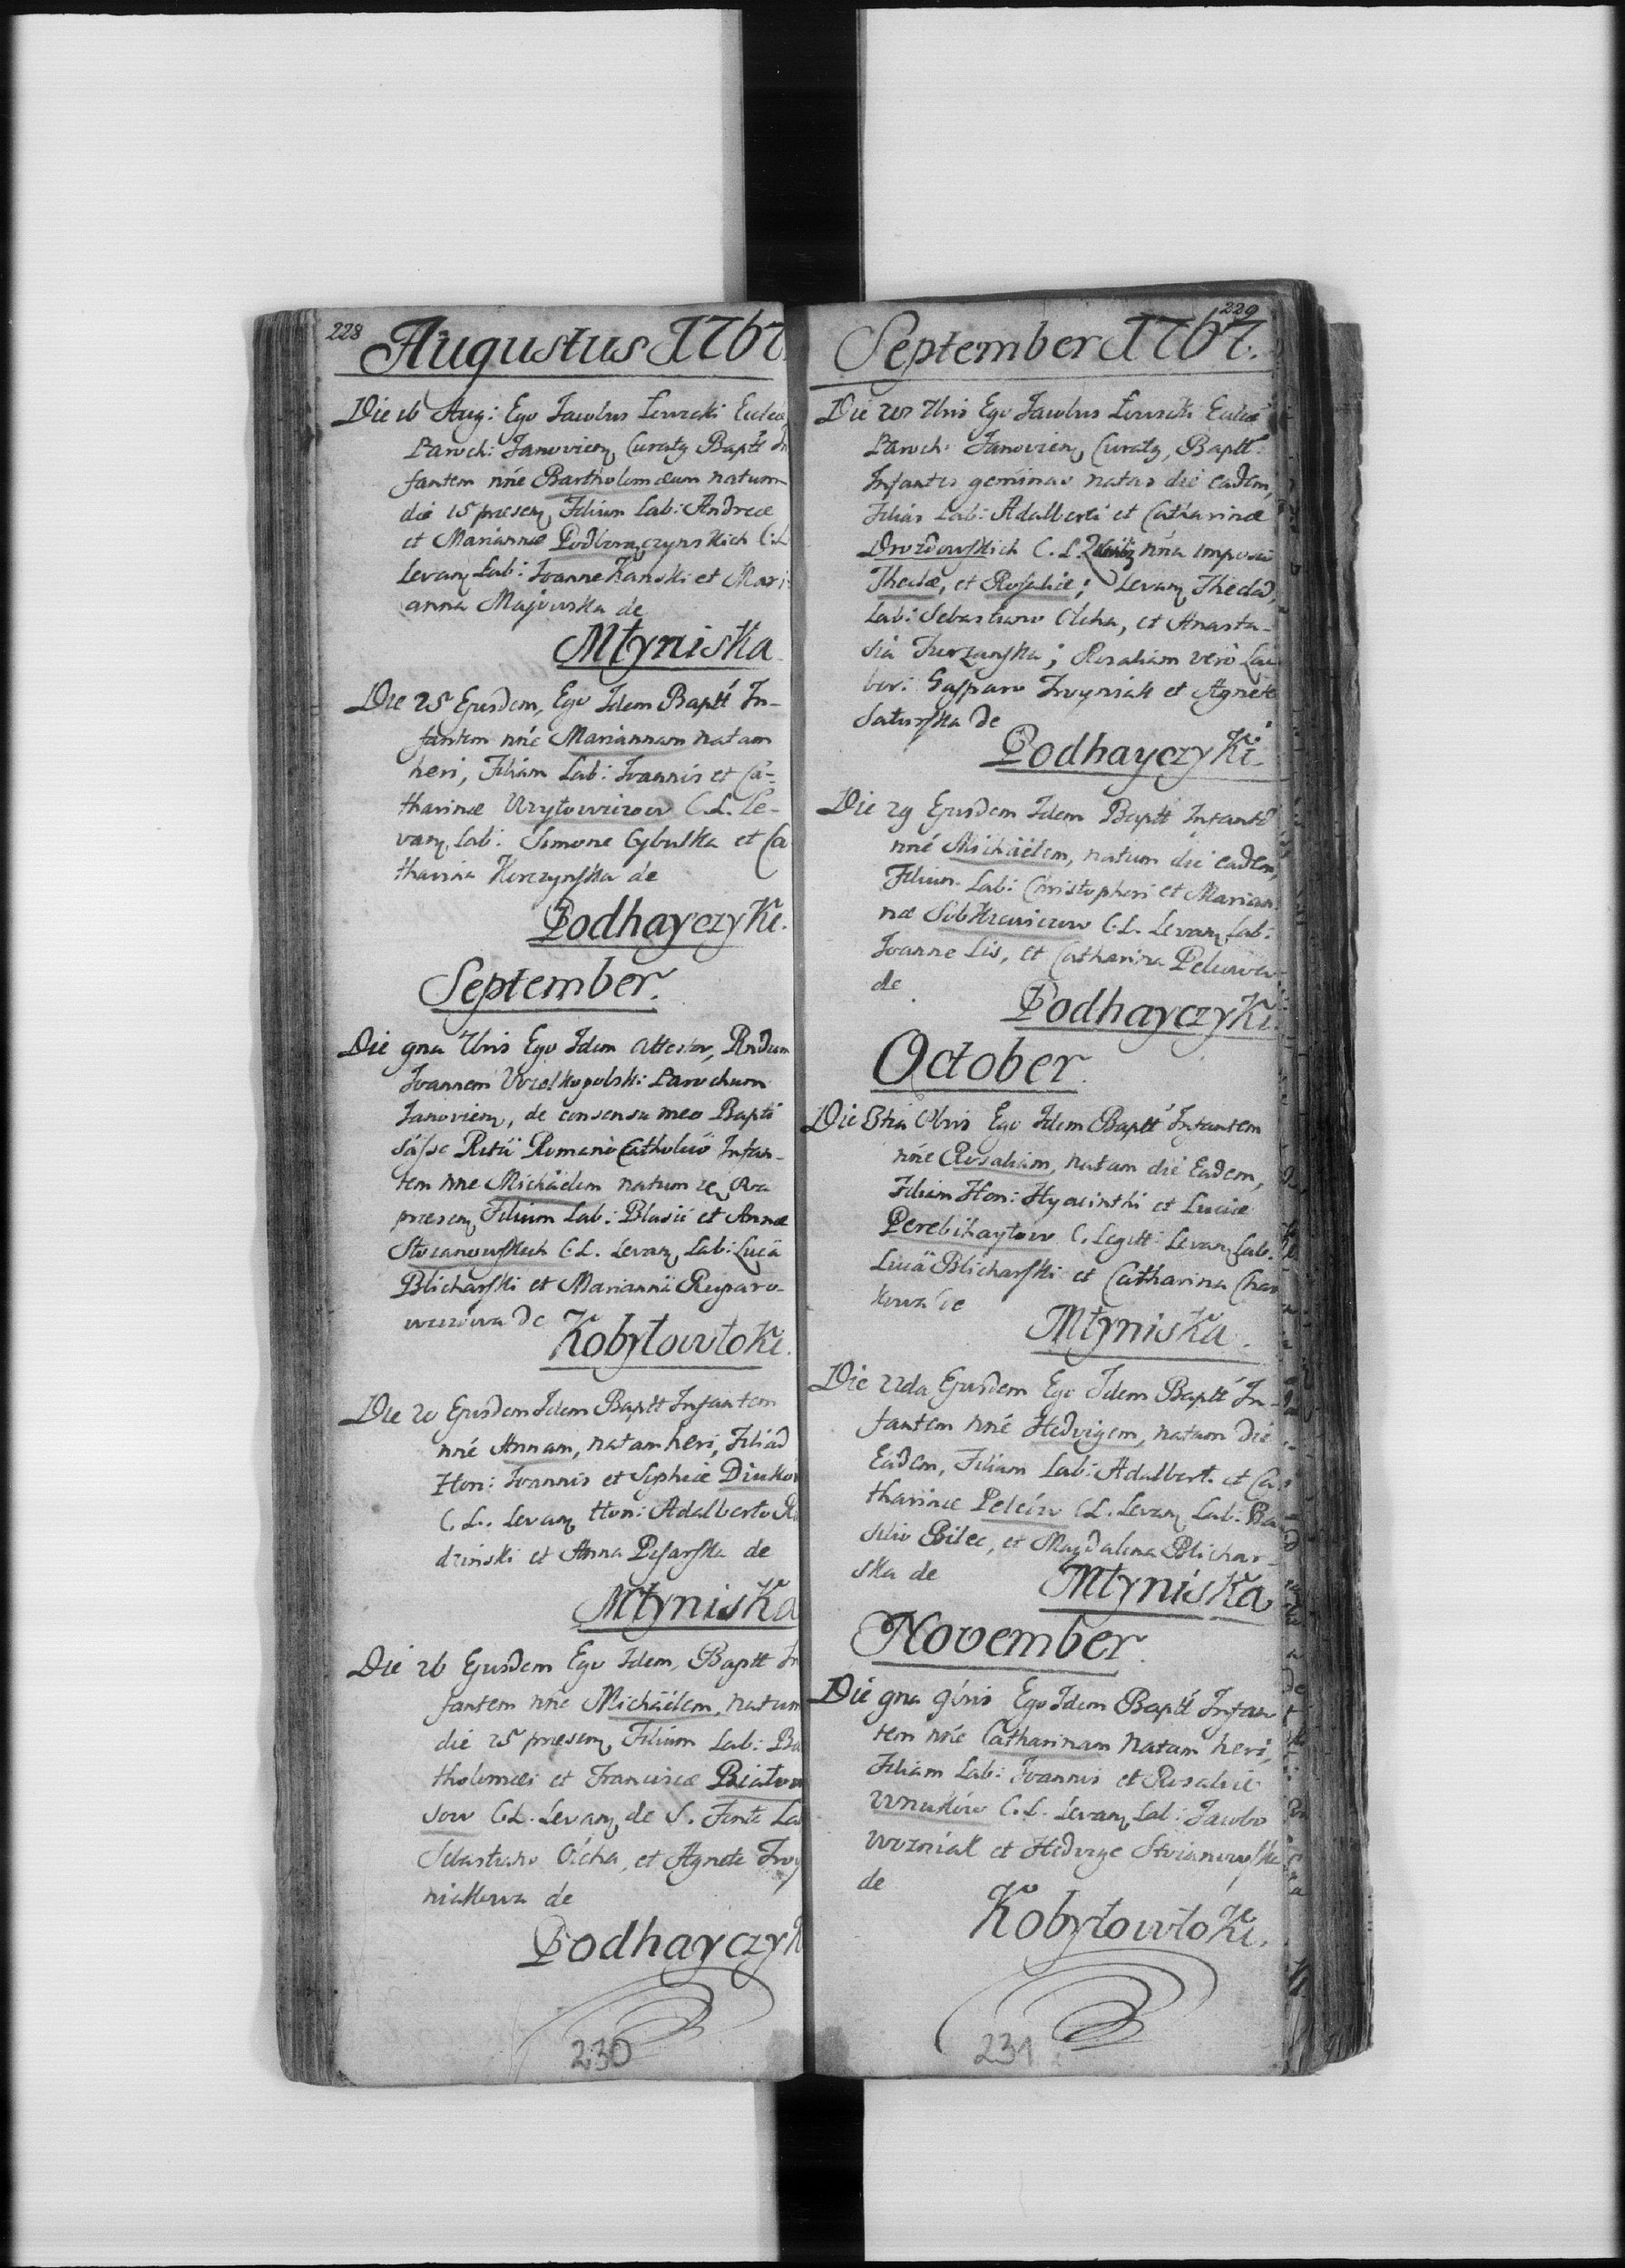 228
Augustus 1767
Die 16 Aug: Ego Jacobus Lewicki Eccl
Paroch: Janovien Curatq Baptt In
fantem nne Bartholomæum natum
die 15 præsen Filium Lab: Andreæ
et Mariannæ Podhoraczynskich C:L
Levan Lab: Joanne Kanski et Mari
anna Majowska de
Młyniska
Die 25 Ejusdem, Ego Idem Baptt In-
fantem nne Mariannam natam
heri, Filiam Lab: Joannis et Ca-
tharinæ C.L. Le-
van, Lab: Simone Cybulska et Ca
tharina Korczynska de
Podhayczyki.
September.
Die 9na 7bris Ego Idem Attestor, Rndum
Joannem Wielkopolski Parochum
Janovien, de consensu meo Bapti
sásse Ritü Romano Catholico Infan-
tem nne Michäelem natum
præsen Filium Lab: Blasii et Annæ
Stocanowskich C.L. Levan Lab: Lucä
Blicharski et Mariannä
de
Kobyłowłoki.
Die 20 Ejusdem Idem Baptt Infantem
nné Annam, natam heri, Filiad
Hon: Joannis et Sophiæ
C.L. Levan Hon: Adalberto R
dzinski et Anna Pisarska de
Młyniska
Die 26 Ejusdem Ego Idem, Baptt In
fantem nne Michäelem, natum
die 25 præsen, Filium Lab: Ba
tholomæi et Franciscæ
sow C.L. Levan de S. Fonte La
Sebastiano Olcha, et Agnete Troy
niakowa de
Podhayczyk
230
229
September 1767.
Die 7bris Ego Jacobus Lewicki Eccl
Paroch: Janovien Curatq, Baptt
Infantes geminas natas die eadem,
Filias Lab: Adalberti et Catharinæ
Drozdowskich C.L. Quibq nna imposui
Theclæ, et Rosaliæ; Levan Theclad,
Lab: Sebastiano Olcha, et Anasta-
sia Turzanska; Rosaliam verò Lai
bor: Gasparo Troyniak et Agnete
Saturska de
Podhayczyki
Die 29 Ejusdem Idem Baptt Infante
nné Michäelem, natum die eadem,
Filium Lab: Christophori et Marian
næ C.L. Levan, Lab:
Joanne Lis, et Catharina Pelcowa
de
Podhayczyki.
October.
Die 3tia 8bris Ego Idem Baptt Infantem
nné Rosaliam, natam die Eadem,
Filiam Hon: Hyacinthi et Luciæ
Perebihaytow C. Legitt: Levan Lab.
Lucä Blicharski et Catharina
de
Młyniska.
Die 22da Ejusdem Ego Idem Baptt In-
fantem nné Hedvigem, natam die
Eadem, Filiam Lab: Adalbert. et Ca
tharinæ Pelców C.L. Levan Lab: Ba
silio Bilec, et Magdalena Blichar-
ska de
Młyniska
November.
Die 9na 9bris Ego Idem Baptt Infan
tem nné Catharinam Natam heri,
Filiam Lab: Joannis et Rosaliæ
Wnuków C.L. Levan Lab: Jacobo
Wozniak et Hedvige
de
Kobyłowłoki.
231